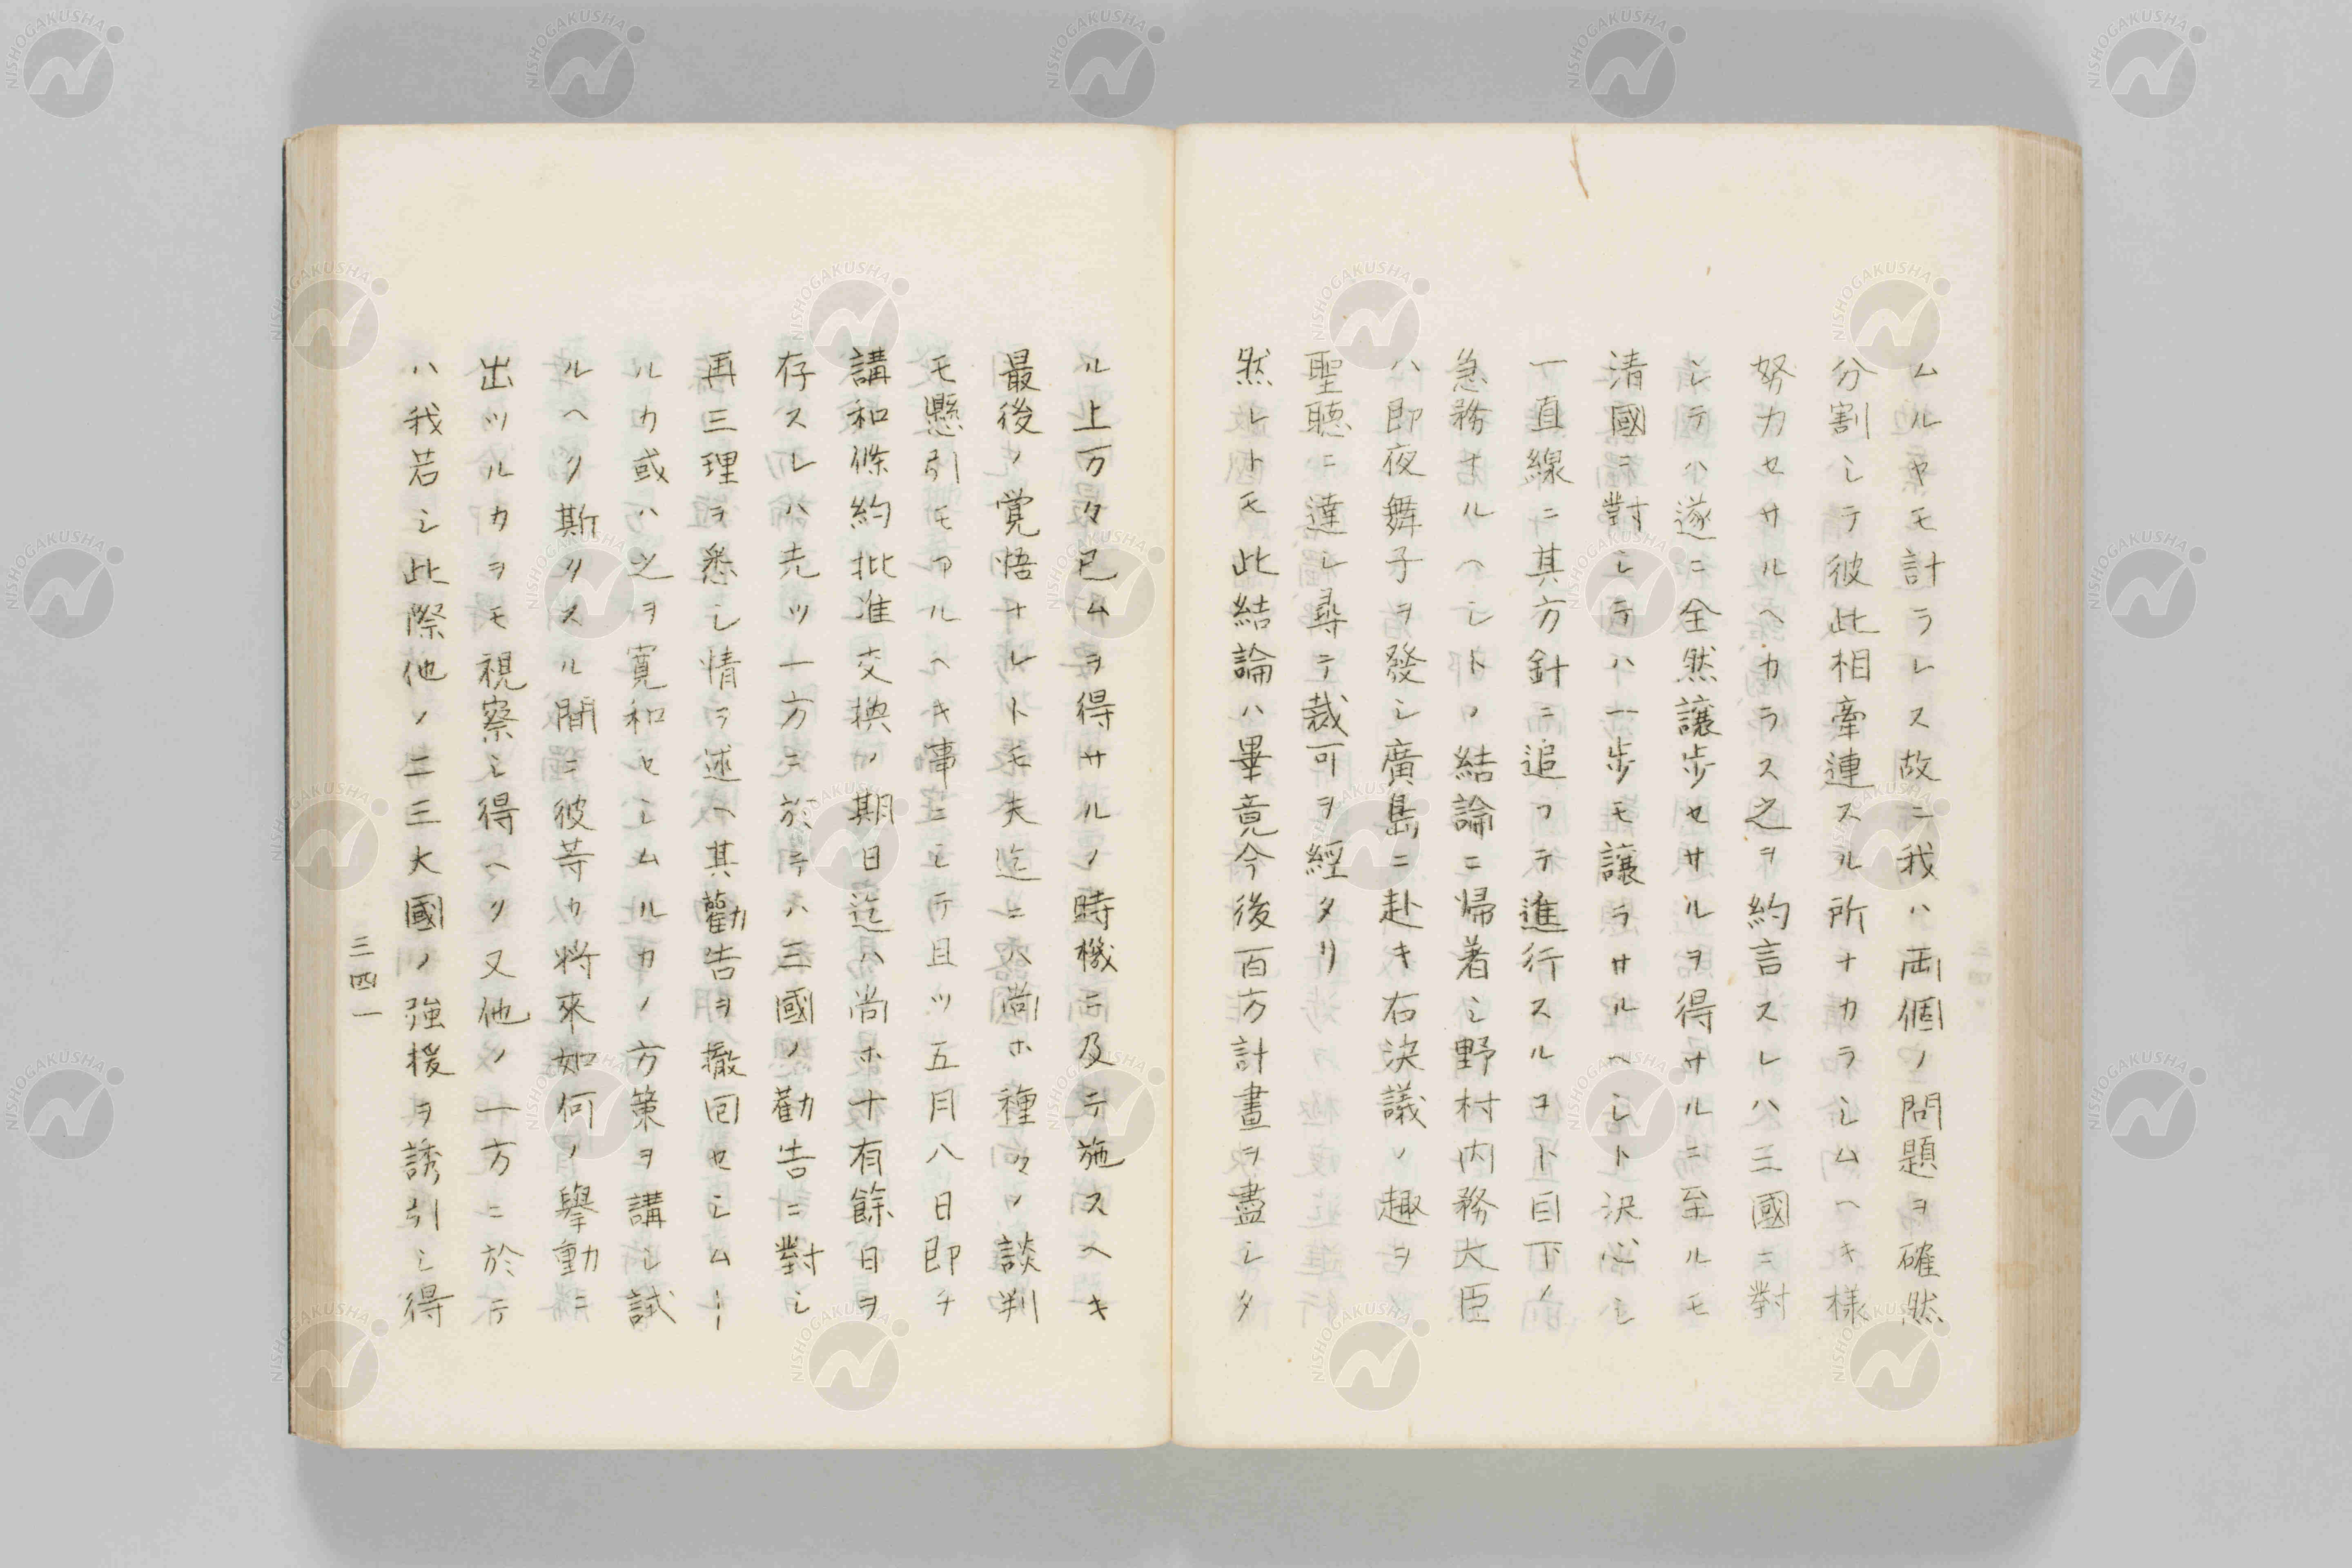 ムルヤモ計ラレス故ニ我ハ両個ノ問題ヲ確然
分割シテ彼此相牽連スル所ナカラシムヘキ様
努力セサルヘカラス之ヲ約言スレハ三國ニ對
シテハ遂ニ全然譲歩セサルヲ得サルニ至ルモ
清國ニ對シテハ一歩モ譲ラサルヘシト決心シ
一直線ニ其方針ニ追フテ進行スルヿト目下ノ
急務ナルヘシトノ結論ニ帰着シ野村内務大臣
ハ即夜舞子ヲ發シ廣島ニ赴キ右決議ノ趣ヲ
聖聴ニ達シ尋テ裁可ヲ經タリ
然レトモ此結論ハ畢竟今後百方計畫ヲ盡シタ
ル上万々已ムヲ得サルノ時機ニ及テ施スヘキ
最後ノ覚悟ナレトモ夫迄ニハ尚ホ種々ノ談判
モ懸引モアルヘキ事ニシテ且ツ五月八日即チ
講和條約批准交換ノ期日迄ハ尚ホ十有餘日ヲ
存スレハ先ツ一方ニ於テハ三國ノ勸告ニ對シ
再三理ヲ悉シ情ヲ述ヘ其勸告ヲ撤回セシムー
ルカ或ハ之ヲ寛和セシムルカノ方策ヲ講シ試
ルヘク斯クスル間ニ彼等カ将來如何ノ擧動ニ
出ツルカヲモ視察シ得ヘク又他ノ一方ニ於テ
ハ我若シ此際他ノ二三大國ノ強援ヲ誘引シ得
三四一